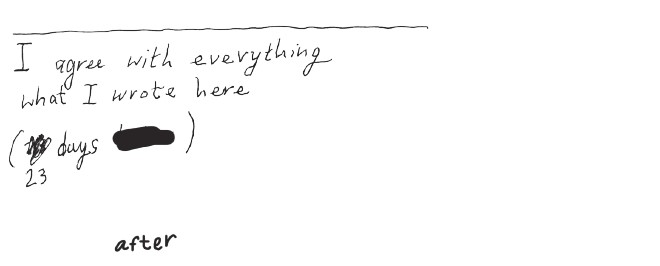 I agree with everything
what I wrote here
( days )
23
after